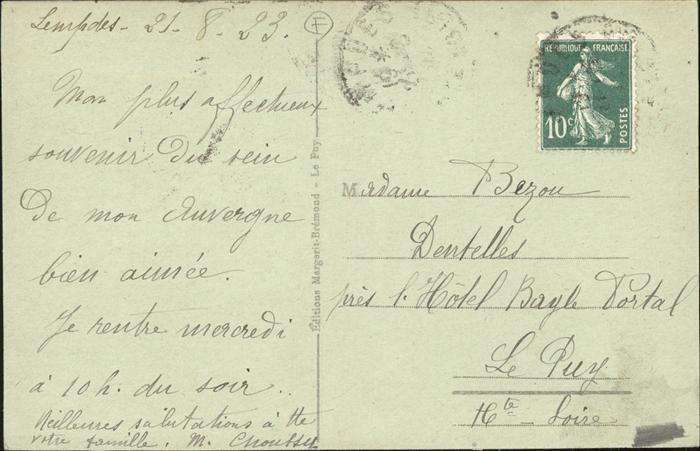 Lempdes - 21-8-23.
F
Mon plus affectueux
souvenir du sein
de mon Auvergne
bien aimée.
Je rentre mercredi
à 10h. du soir..
Meilleures salutations à tte
votre famille. M.
Éditions Margerit-Brémond - Le Puy
RÉPUBLIQUE FRANÇAISE
10c
POSTES
Madame Bezou
Dentelles
près l'Hôtel Bayle Portal
Le Puy
Hte - Loire